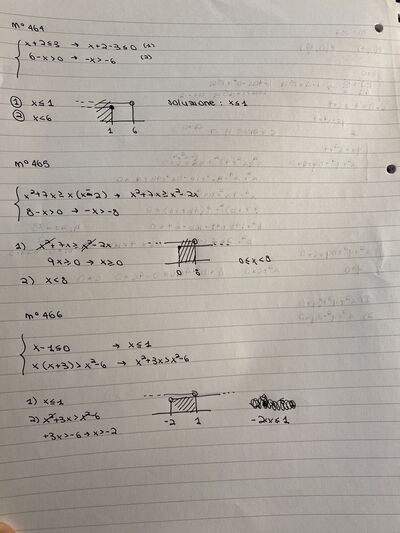 n° 464
x+2≤3 → x+2-3≤0 (1)
6-x>0 → -x>-6 (2)
① x≤1
② x<6
1 6
soluzione: x≤1
n° 465
x²+7x≥x(x-2) → x²+7x≥x²-2x
8-x>0 → -x>-8
1) x²+7x≥x²-2x
9x≥0 → x≥0
2) x<8
0 8
0≤x<8
n° 466
x-1≤0 → x≤1
x(x+3)>x²-6 → x²+3x>x²-6
1) x≤1
2) x²+3x>x²-6
+3x>-6→x>-2
-2 1
-2<x≤1